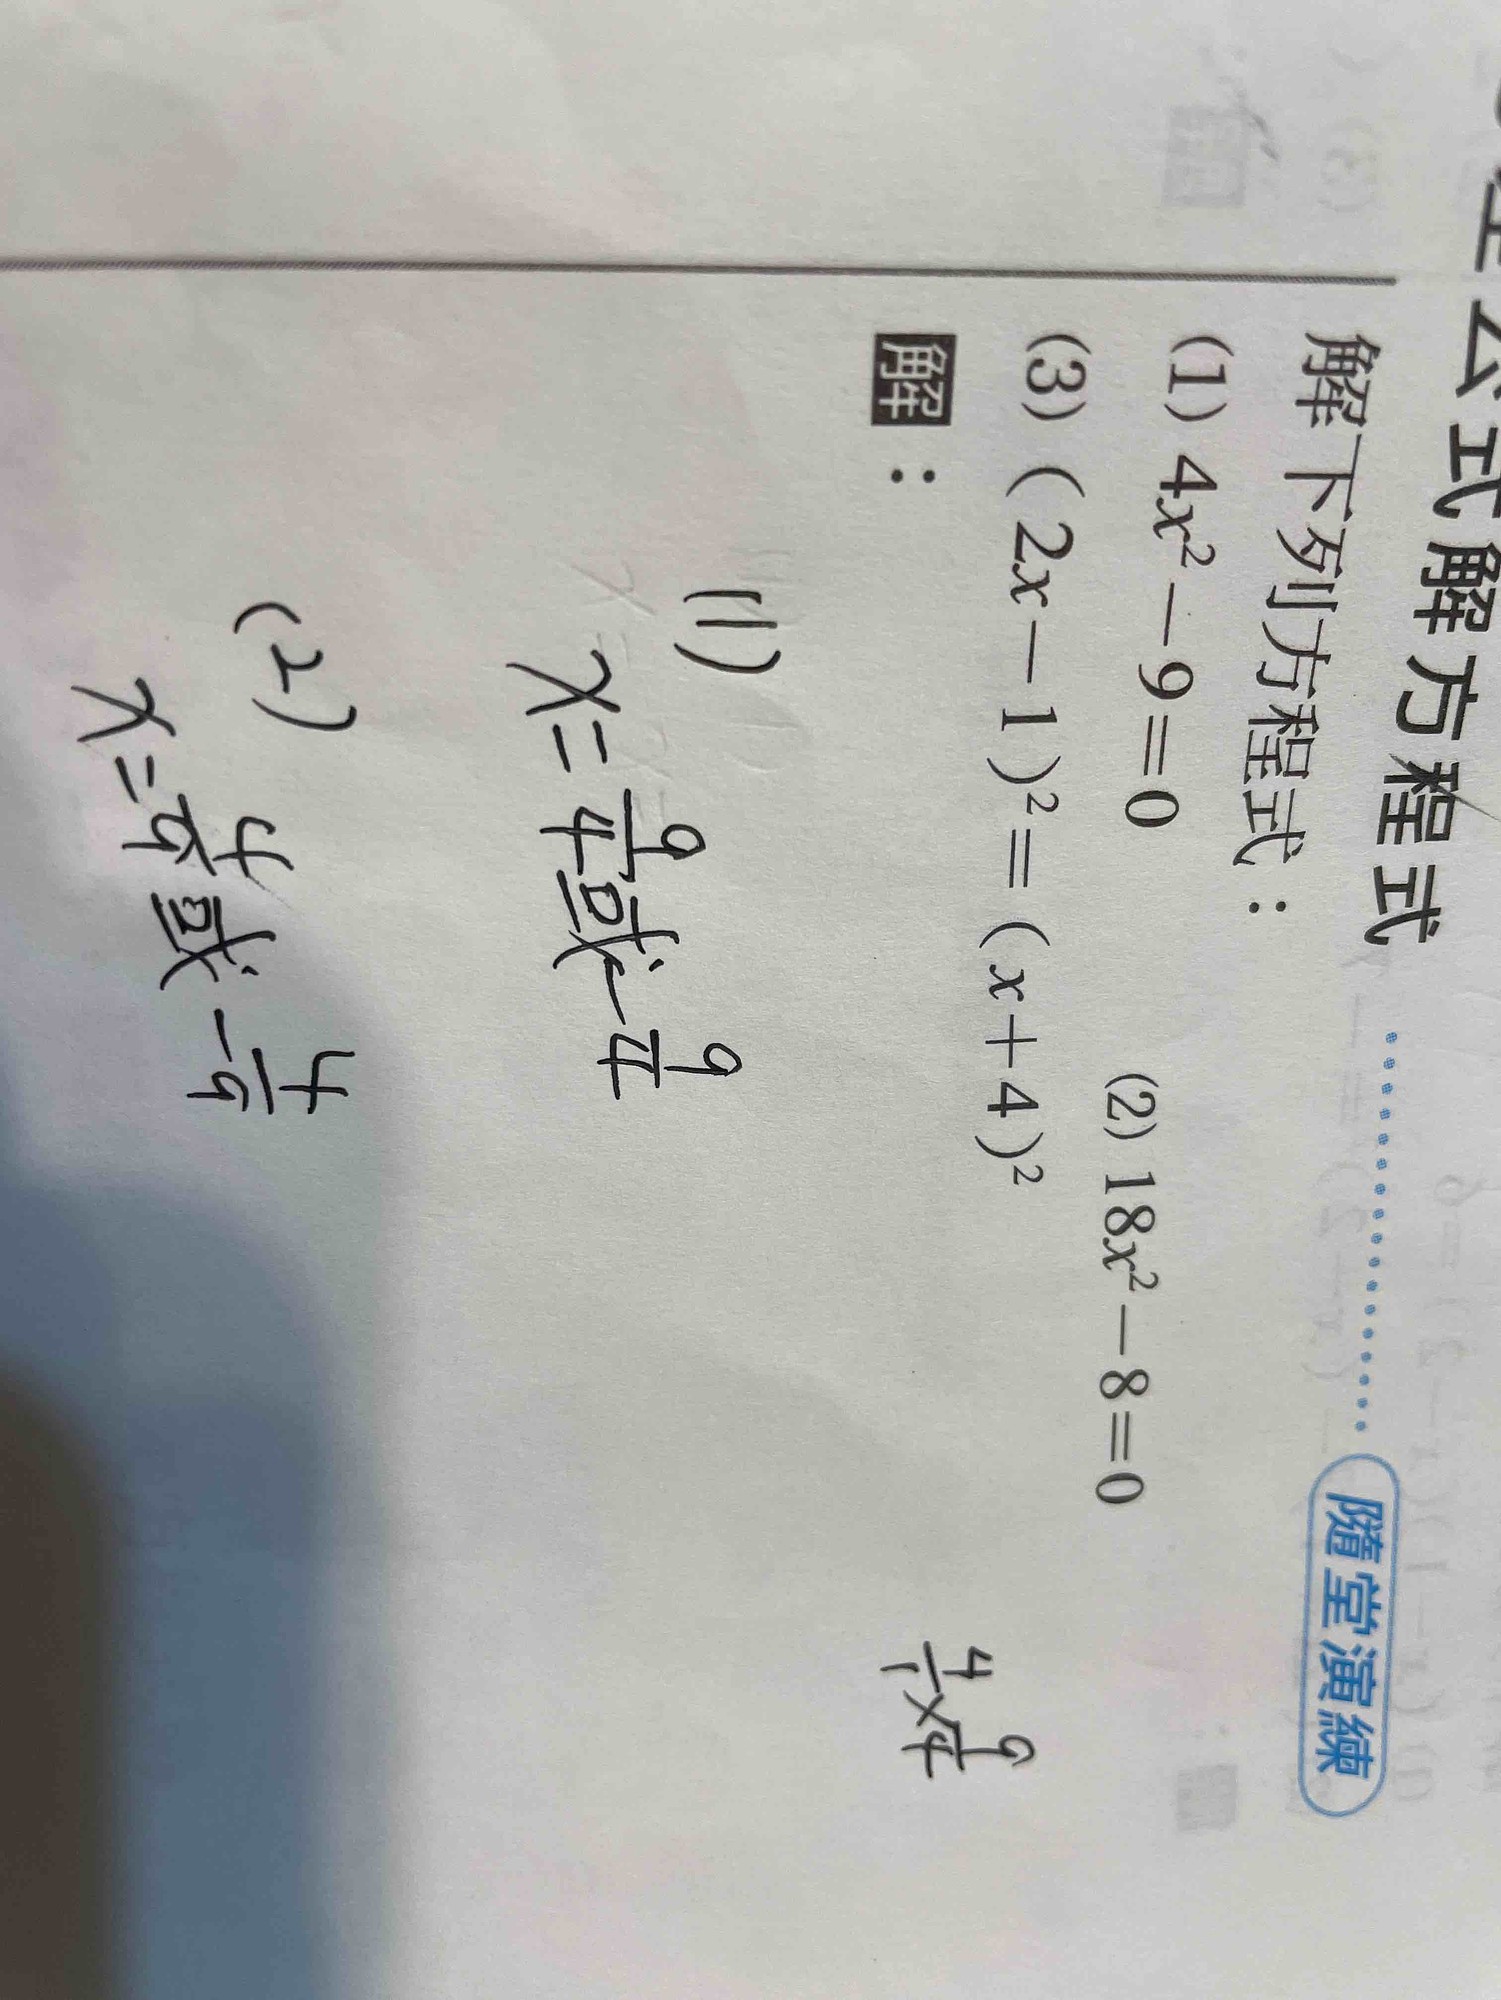 公式解方程式 隨堂演練
解下列方程式：
(1) 4x²－9＝0 (2) 18x²－8＝0
(3) (2x－1)²＝(x＋4)²
解：
4/1×9/4
(1)
x=9/4或-9/4
(2)
x=4/9或-4/9